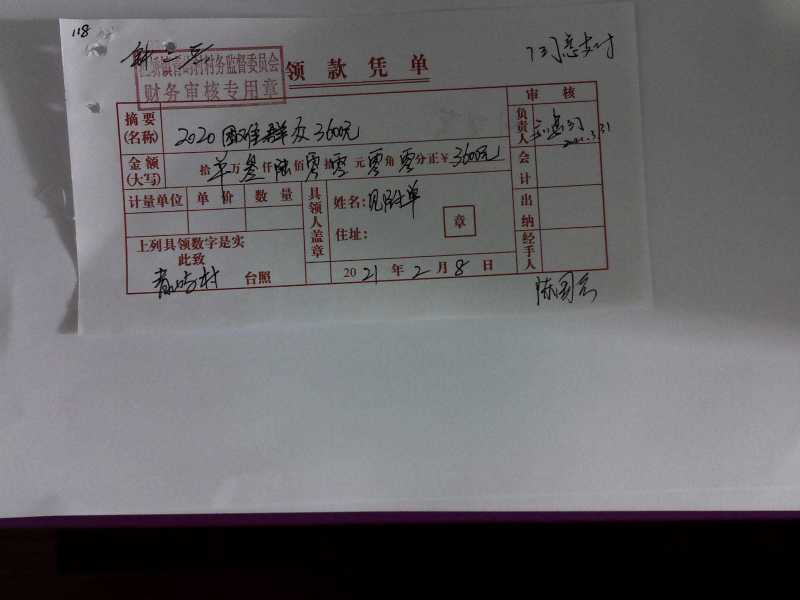 118
同意支付
村务监督委员会
财务审核专用章
领款凭单
审核
摘要
(名称)
2020 困难群众3600元
负责人
2021.3.31
金额
(大写)
拾 万 叁 仟 陆 佰 零 拾 零 元 零 角 零 分正 ¥ 3600元
会计
计量单位 单价 数量
具领人盖章
姓名: 见附单
住址:
章
出纳
上列具领数字是实
此致
村 台照
2021年2月8日
经手人